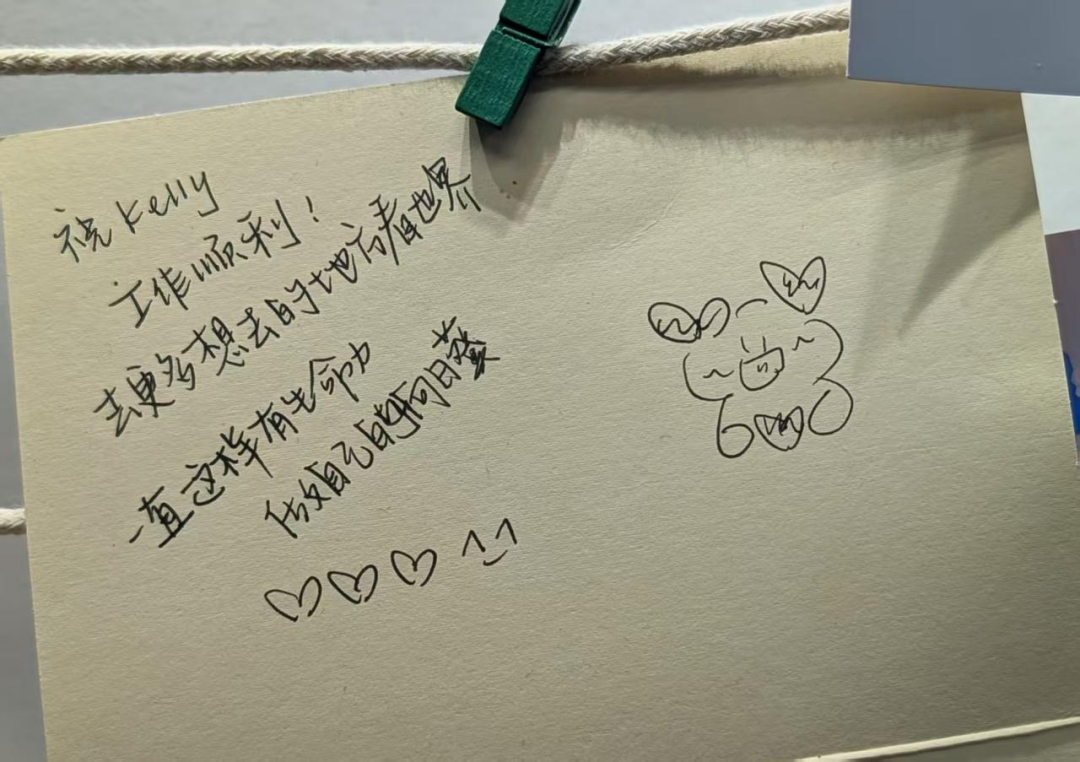 祝 Kelly
工作顺利!
去更多想去的地方看世界
一直这样有生命力
做自己的向日葵